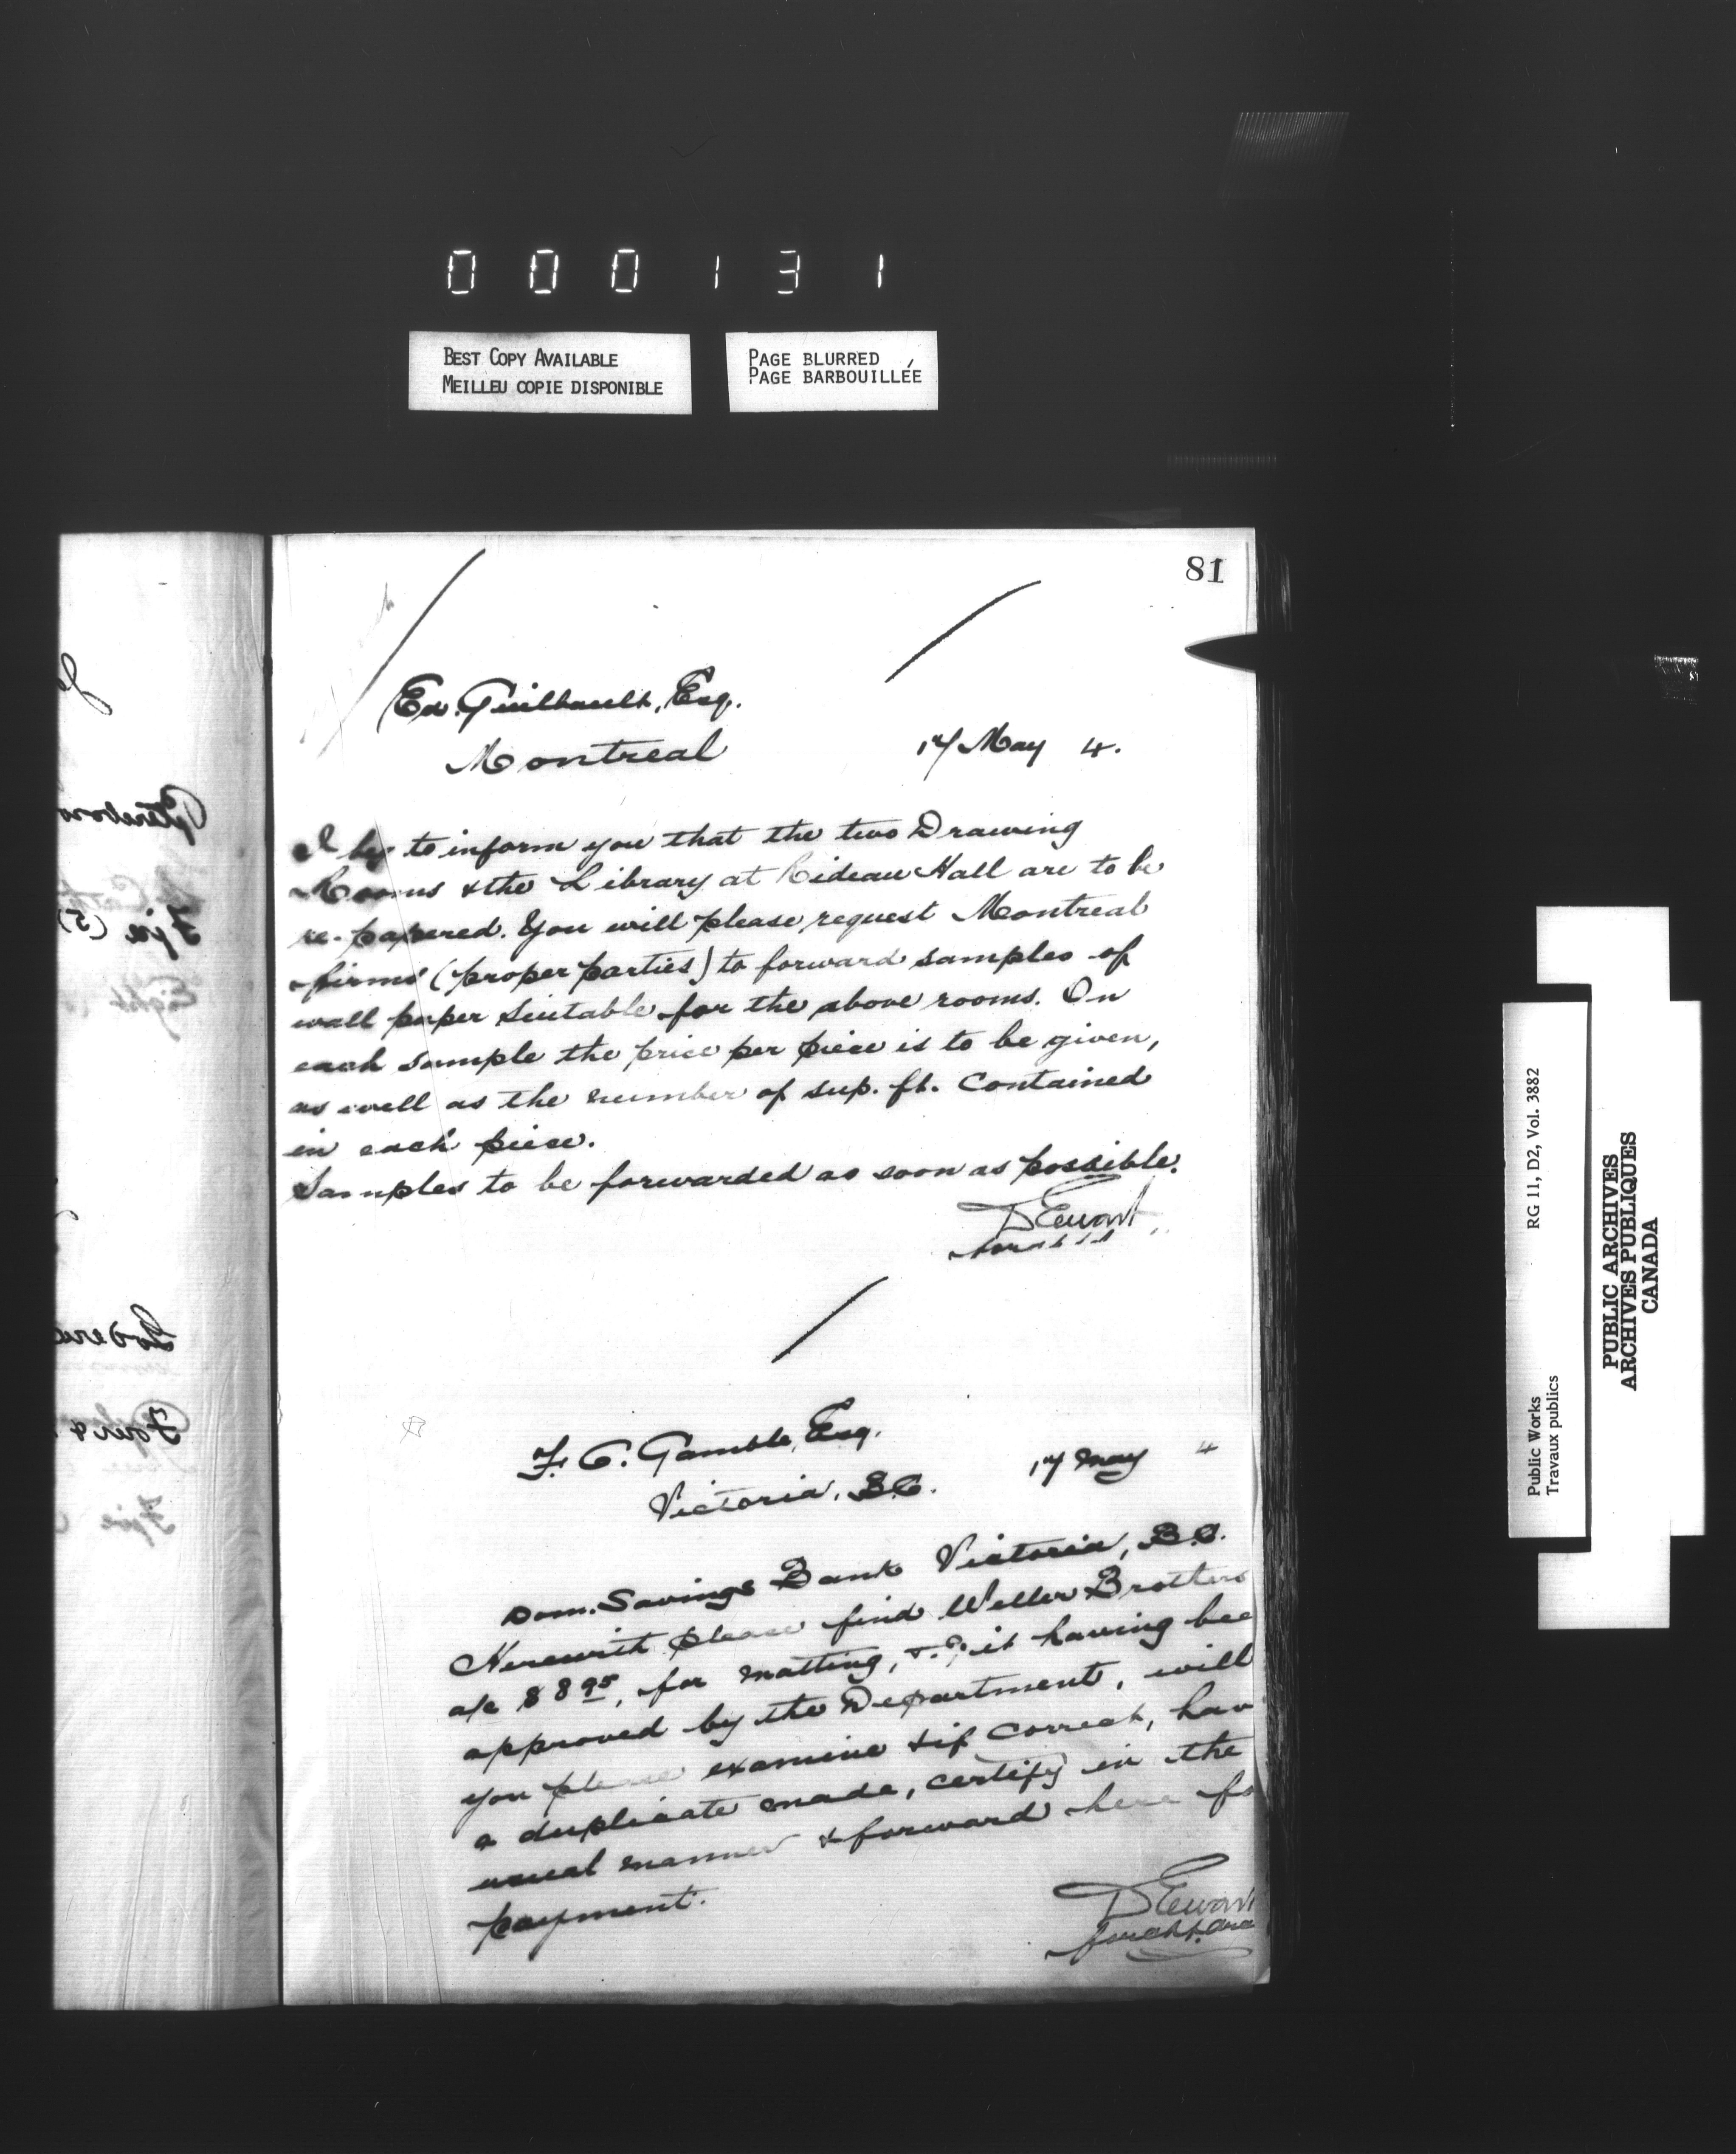 000131
BEST COPY AVAILABLE
MEILLEU COPIE DISPONIBLE
PAGE BLURRED
PAGE BARBOUILLÉE
81
Ed. Guilbault, Esq.
Montreal
17 May 4.
I beg to inform you that the two Drawing
Rooms & the Library at Rideau Hall are to be
re-papered. You will please request Montreal
firms (proper parties) to forward samples of
wall paper suitable for the above rooms. On
each sample the price per piece is to be given,
as well as the number of sup. ft. contained
in each piece.
Samples to be forwarded as soon as possible.
D Ewart
F. C. Gamble, Esq.
Victoria, B.C.
17 May 4
Dom. Savings Bank Victoria, B.C.
Herewith please find Weller Brothers
a/c $8 95, for matting, &c, it having bee
approved by the Department, will
you please examine & if correct, hav
a duplicate made, certify in the
usual manner & forward here fo
payment.
D Ewart
Peterboro
Five (5)
Eight
Four &
Five
RG 11, D2, Vol. 3882
Public Works
Travaux publics
PUBLIC ARCHIVES
ARCHIVES PUBLIQUES
CANADA